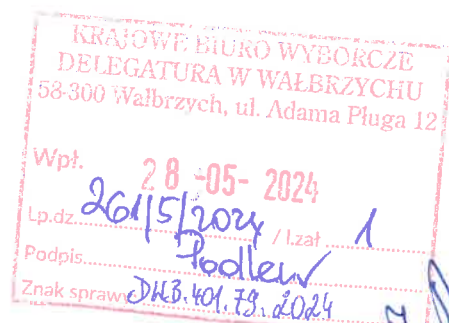 KRAJOWE BIURO WYBORCZE
DELEGATURA W WAŁBRZYCHU
58-300 Wałbrzych, ul. Adama Pługa 12
Wpł. 28-05-2024
Lp.dz. 261/5/2024 / l.zał. 1
Podpis
Znak sprawy DWB.401.79.2024